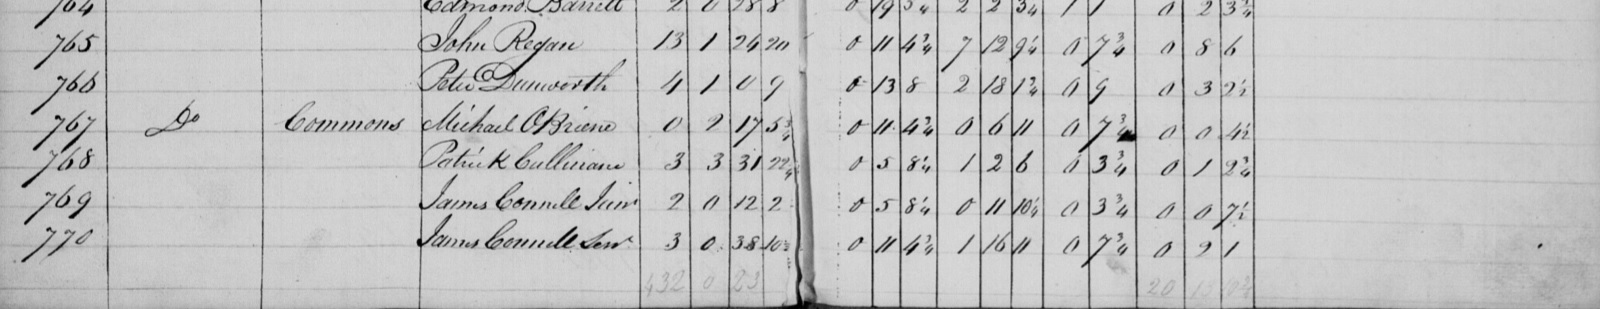 764 Edmond Barrett 2 0 28 8 0 19 3/4 2 2 3 1/4 1 1 0 2 3 3/4
765 John Regan 13 1 24 20 0 11 4 3/4 7 12 9 1/4 0 7 3/4 0 8 6
766 Peter Dunworth 4 1 0 9 0 13 8 2 18 1 3/4 0 9 0 3 2 1/2
767 Do Commons Michael OBriene 0 2 17 5 3/4 0 11 4 3/4 0 6 11 0 7 3/4 0 0 4 1/2
768 Patrick Cullinane 3 3 31 22 0 5 8 1/4 1 2 6 0 3 3/4 0 1 2 3/4
769 James Connell Junr 2 0 12 2 0 5 8 1/4 0 11 10 1/4 0 3 3/4 0 0 7 1/2
770 James Connell Senr 3 0 38 10 0 11 4 3/4 1 16 11 0 7 3/4 0 2 1
432 0 23 20